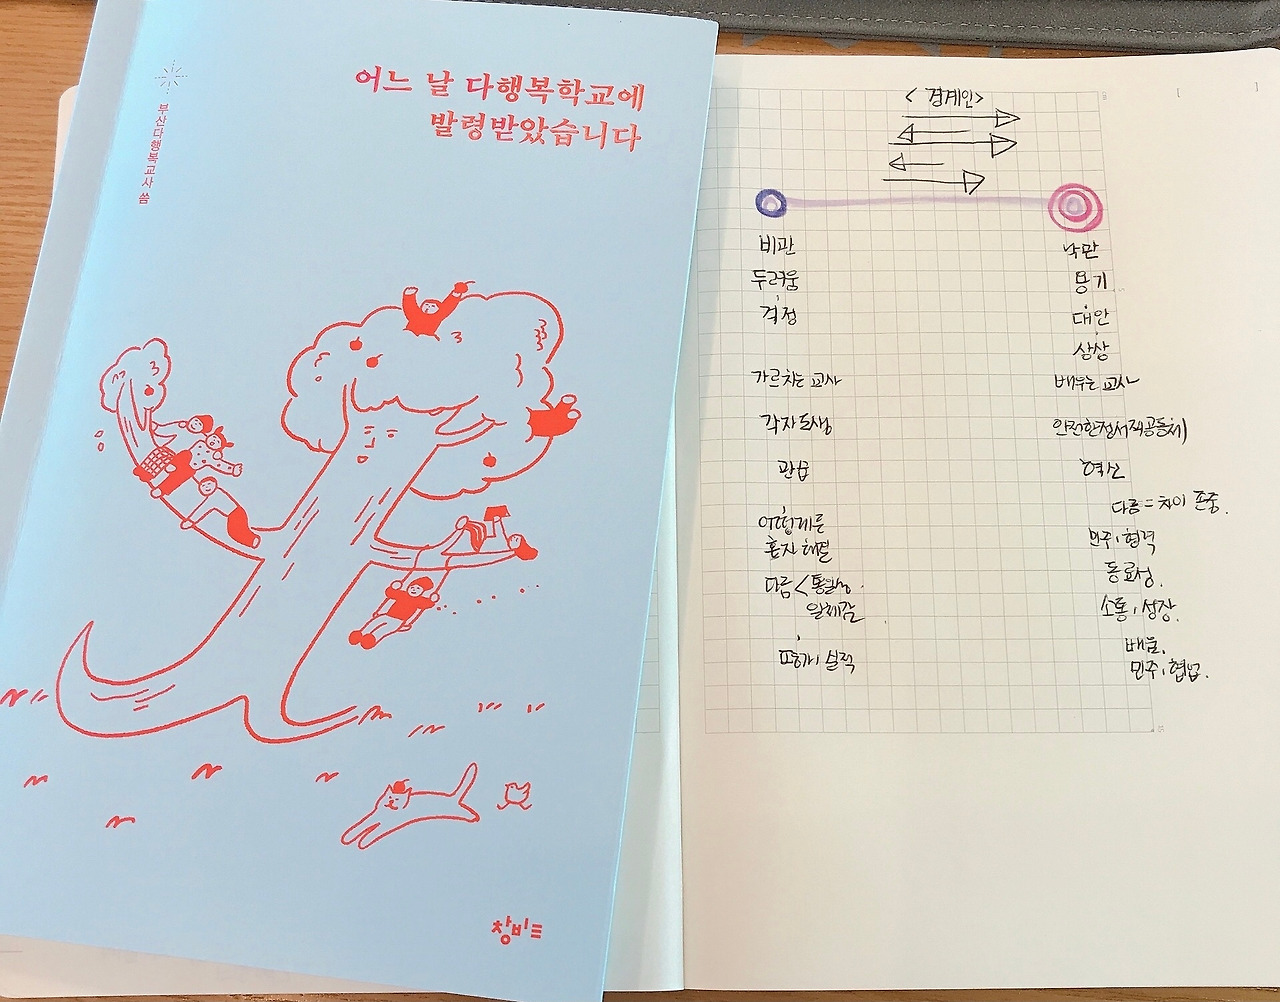 어느 날 다행복학교에
발령받았습니다
부산다행복교사 씀
창비
<경계인>
비관
두려움
걱정
가르치는 교사
각자도생
관습
어떻게든
혼자 해결
다름<통일성.
일체감
평가, 실적
낙관
용기
대안
상상
배우는 교사
안전한 정서적 공동체)
혁신
다름=차이 존중.
민주, 협력
동료성.
소통, 성장.
배움.
민주, 협업.